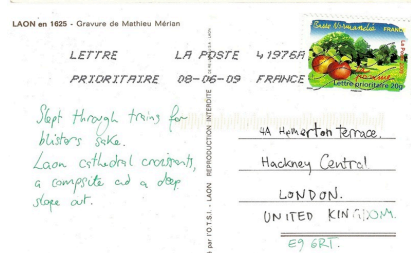 LAON en 1625 - Gravure de Mathieu Mérian
Basse Normandie FRANCE
La Poste
Pomme
Lettre prioritaire 20g
LETTRE LA POSTE 41976A
PRIORITAIRE 08-06-09 FRANCE
Slept through trains for
blisters sake.
Laon cathedral croissants,
a campsite and a deep
slope out.
é par l'O.T.S.I. - LAON REPRODUCTION INTERDITE
4A Homerton terrace.
Hackney Central
LONDON.
UNITED KINGDOM.
E9 6RT.